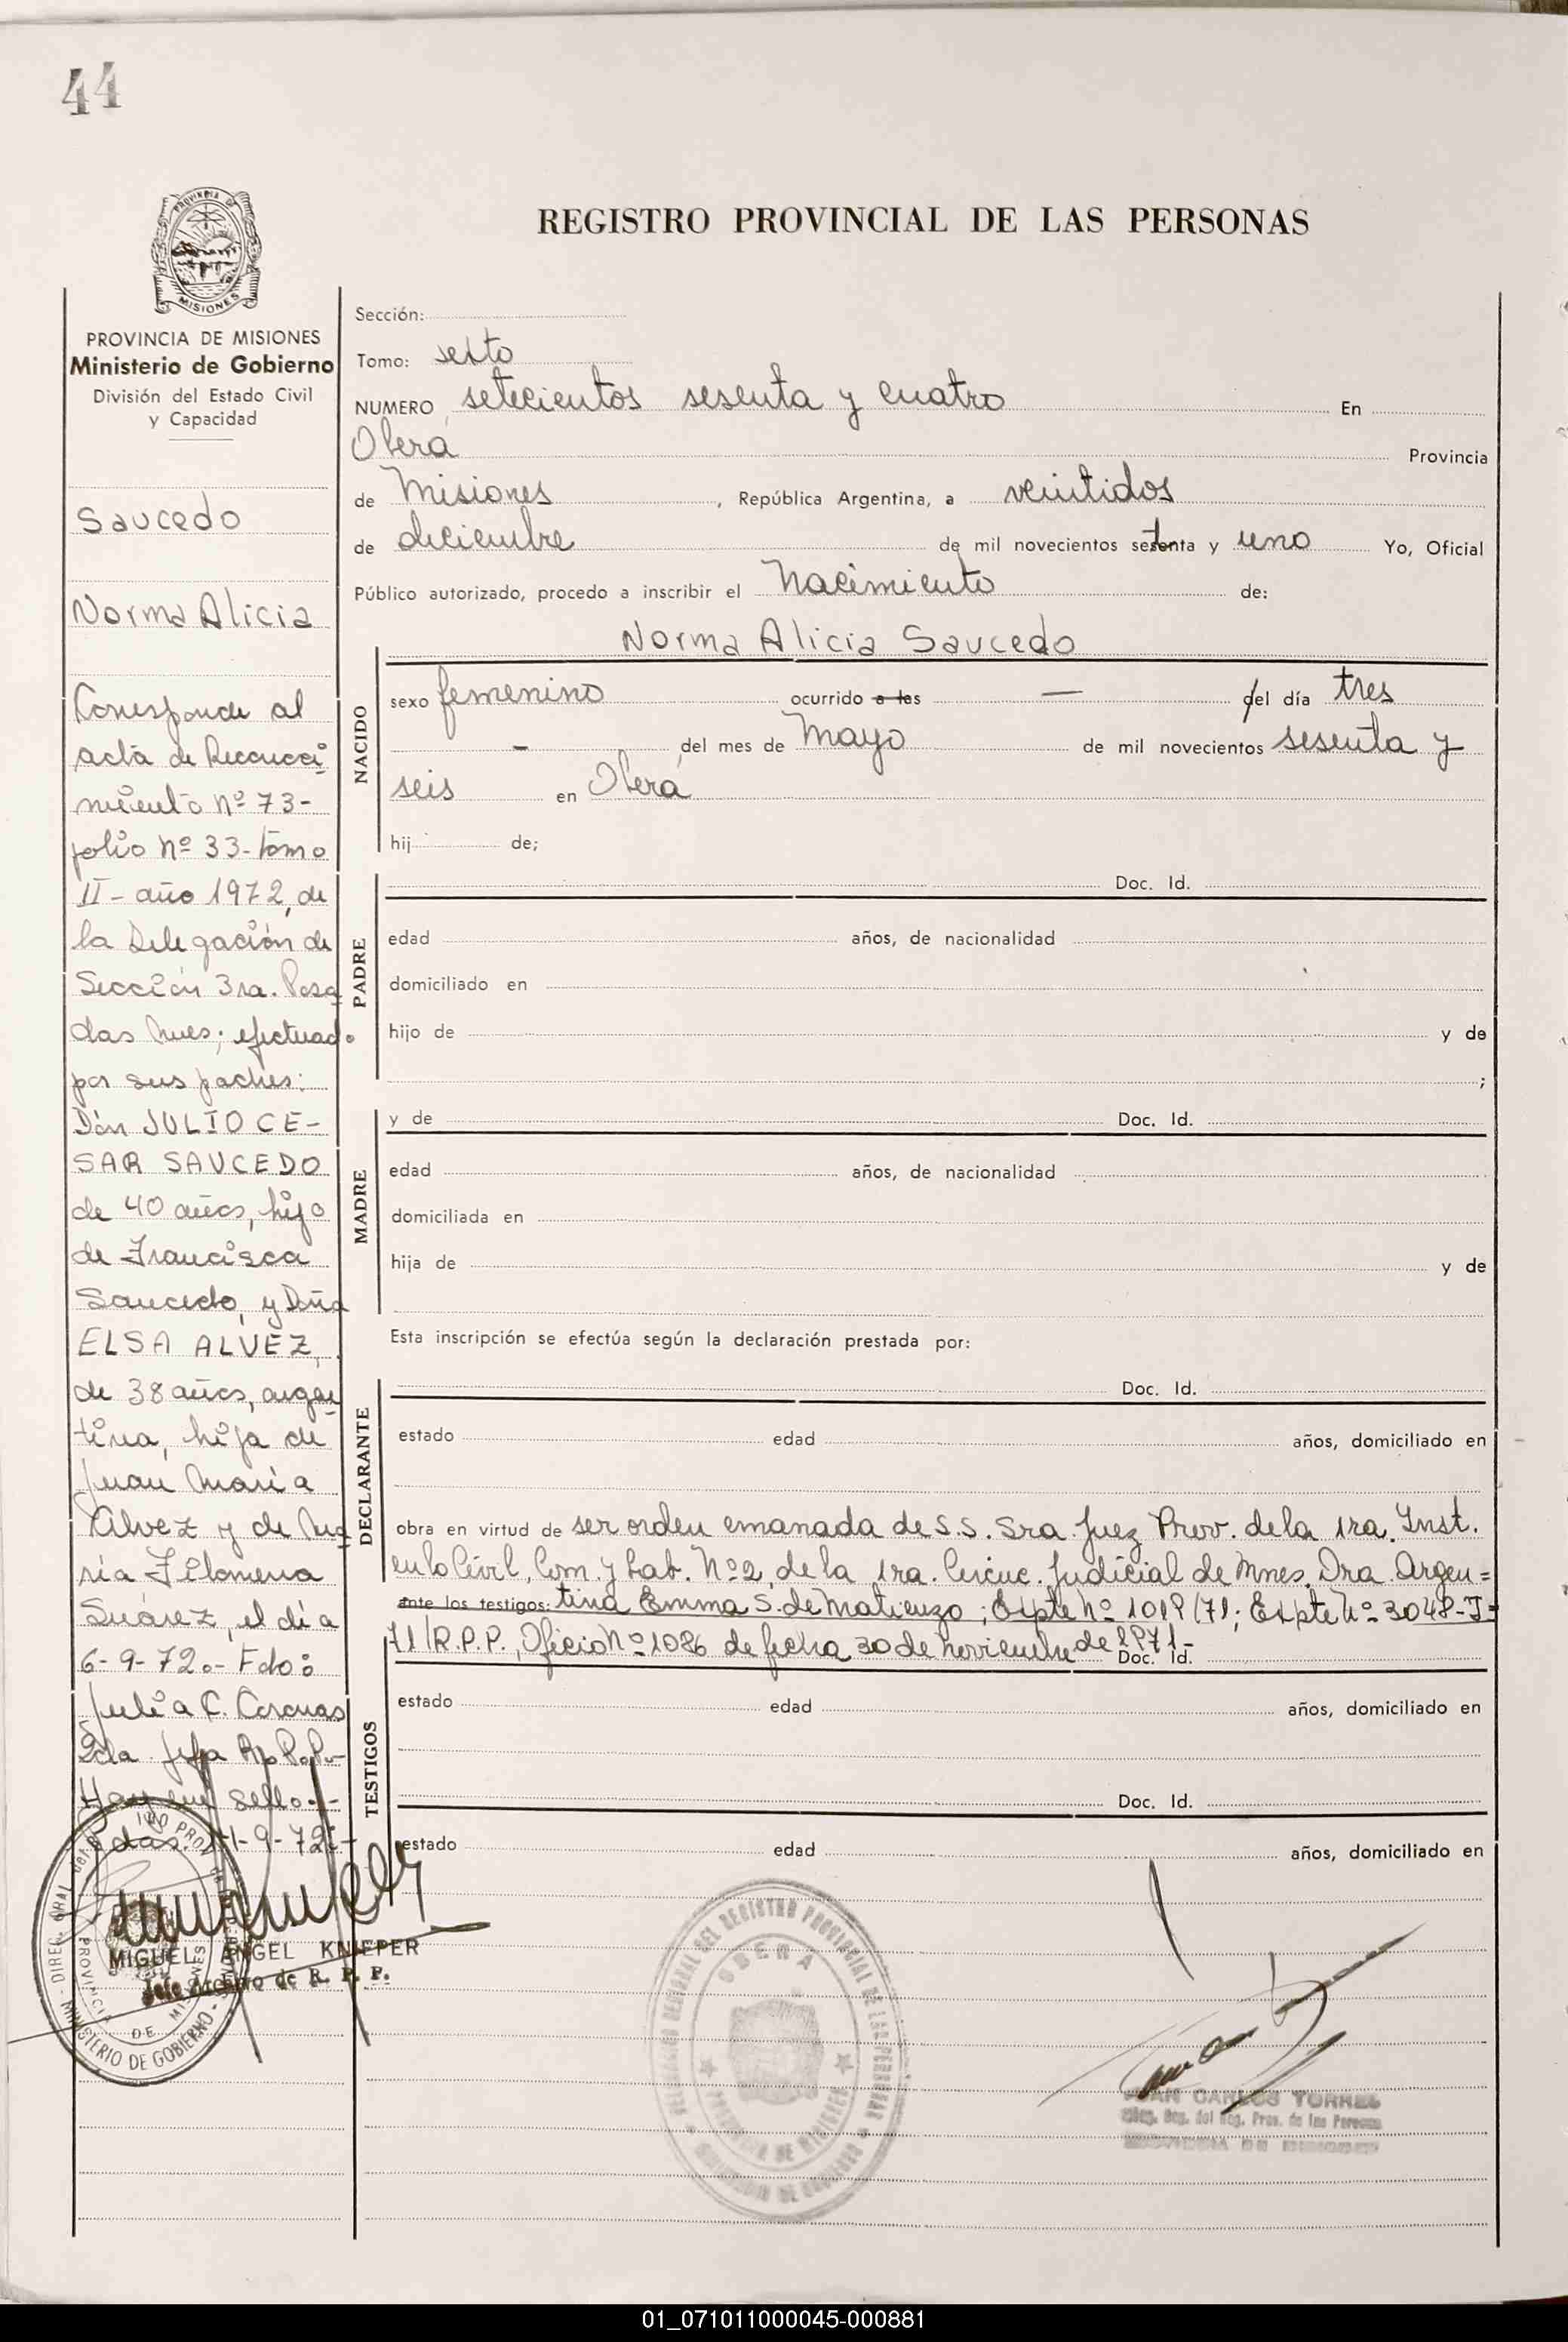 44
PROVINCIA DE
MISIONES
REGISTRO PROVINCIAL DE LAS PERSONAS
PROVINCIA DE MISIONES
Ministerio de Gobierno
División del Estado Civil
y Capacidad
Saucedo
Norma Alicia
Corresponde al
acta de Reconoci
miento nº 73-
folio nº 33- tomo
II- año 1972, de
la Delegación de
Sección 3ra. Posa
das Mnes; efectuado
por sus padres:
Dón JULIO CE-
SAR SAUCEDO
de 40 años, hijo
de Francisca
Saucedo, y Doña
ELSA ALVEZ,
de 38 años, argen
tina, hija de
Juan María
Alvez y de Ma
ría Filomena
Suárez, el día
6-9-72.- Fdo:
Julia C.
2da. Jefa R.P.P.-
Hay un sello.-
Pdas. 11-9-72.-
MIGUEL ANGEL KNIEPER
Jefe Archivo de R. P. P.
MINISTERIO DE GOBIERNO
PROVINCIA DE MISIONES
Sección:
Tomo: sexto
NUMERO setecientos sesenta y cuatro En
Oberá Provincia
de Misiones , República Argentina, a veintidos
de diciembre de mil novecientos setenta y uno Yo, Oficial
Público autorizado, procedo a inscribir el Nacimiento de:
Norma Alicia Saucedo
NACIDO
sexo femenino ocurrido a las — del día tres
- del mes de Mayo de mil novecientos sesenta y
seis en Oberá
hij de;
PADRE
Doc. Id.
edad años, de nacionalidad
domiciliado en
hijo de y de
;
MADRE
y de Doc. Id.
edad años, de nacionalidad
domiciliada en
hija de y de
Esta inscripción se efectúa según la declaración prestada por:
DECLARANTE
Doc. Id.
estado edad años, domiciliado en
obra en virtud de ser orden emanada de S.S. Sra. Juez Prov. de la 1ra. Inst.
en lo Civil, Com. y Lab. Nº2, de la 1ra. Circuc. Judicial de Mnes, Dra. Argen=
ante los testigos: tina Emma S. de Matienzo; Expte nº 1019/71; Expte Nº 3048-J=
71/R.P.P., Oficio Nº 1086 de fecha 30 de noviembre de 1971.-
Doc. Id.
TESTIGOS
estado edad años, domiciliado en
Doc. Id.
estado edad años, domiciliado en
OBERA
JUAN CARLOS TORRES
PROVINCIA DE MISIONES
01_071011000045-000881